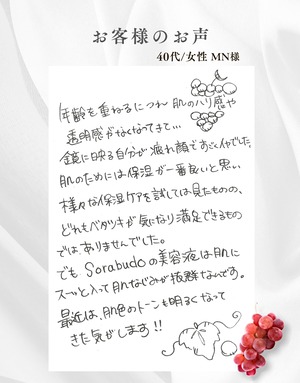 お客様のお声
40代/女性 MN様
年齢を重ねるにつれ肌のハリ感や
透明感がなくなってきて…
鏡に映る自分が疲れ顔ですごくイヤでした。
肌のためには保湿が一番良いと思い
様々な保湿ケアを試しては見たものの、
どれもベタツキが気になり満足できるもの
ではありませんでした。
でも Sorabudoの美容液は肌に
スーッと入って肌なじみが抜群なんです。
最近は、肌色のトーンも明るくなって
きた気がします!!